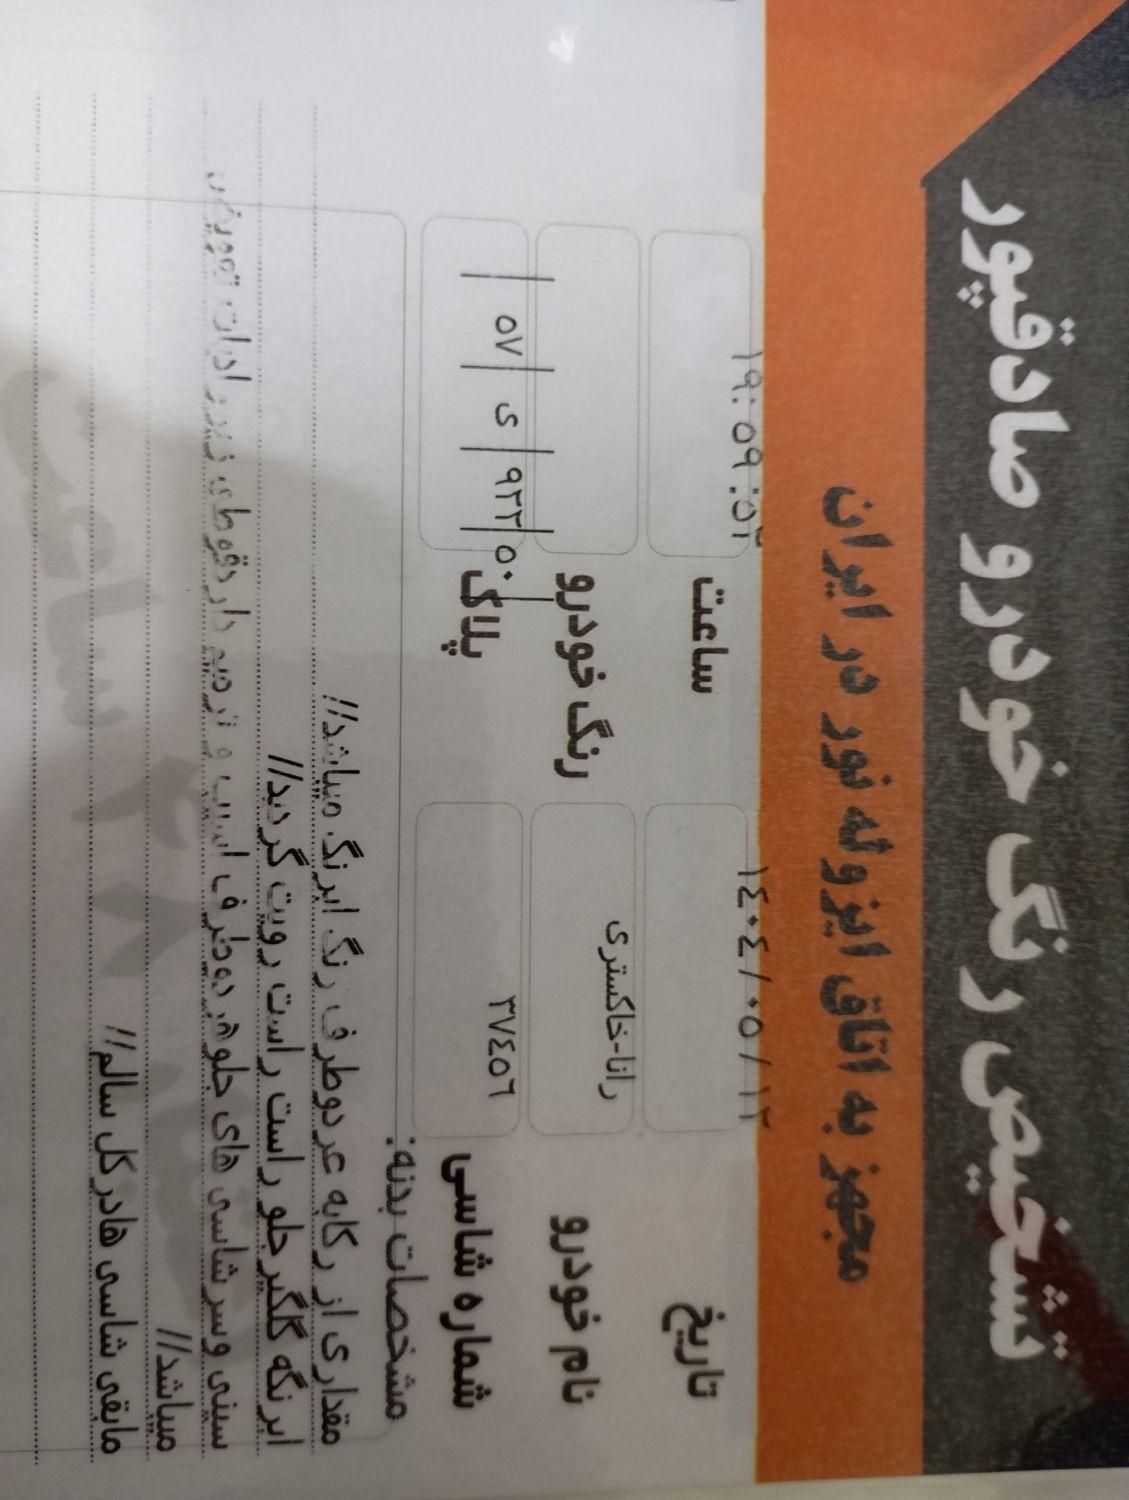 تشخیص رنگ خودرو صادقپور
مجهز به اتاق ایزوله نور در ایران
تاریخ ۱۴۰۴/۰۵/۱۲ ساعت ۱۹:۵۹:۵۲
نام خودرو رانا-خاکستری رنگ خودرو
شماره شاسی ۳۷۴۵۶ پلاک ۵۷ | ی | ۹۲۲ | ۵۰
مشخصات بدنه:
مقداری از رکابه عر دوطرف رنگ ابرنگ میباشد//
ابرنگه گلگیر جلو راست راست رویت گردید//
سینی وسر شاسی های جلوهر دوطرف اسیب و ترمیم دار دقوطی زیر رادیات تعویض
میباشد//
مابقی شاسی هادر کل سالم//
۴۸ ساعت